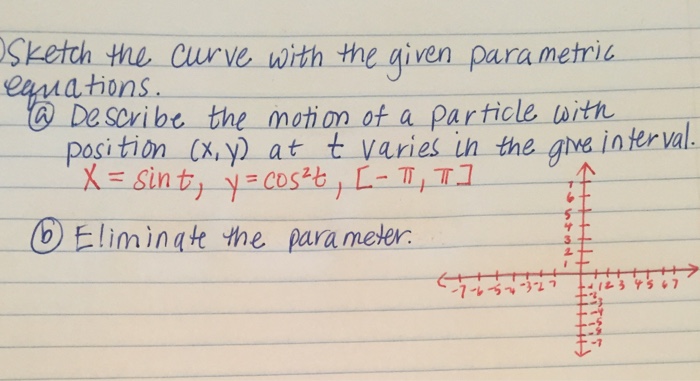 Sketch the curve with the given parametric
equations.
(a) Describe the motion of a particle with
position (x,y) at t varies in the give interval.
X = sin t, y = cos²t, [-π, π]
(b) Eliminate the parameter.
7
6
5
4
3
2
1
-7 -6 -5 -4 -3 -2 1 2 3 4 5 6 7
-1
-2
-3
-4
-5
-6
-7